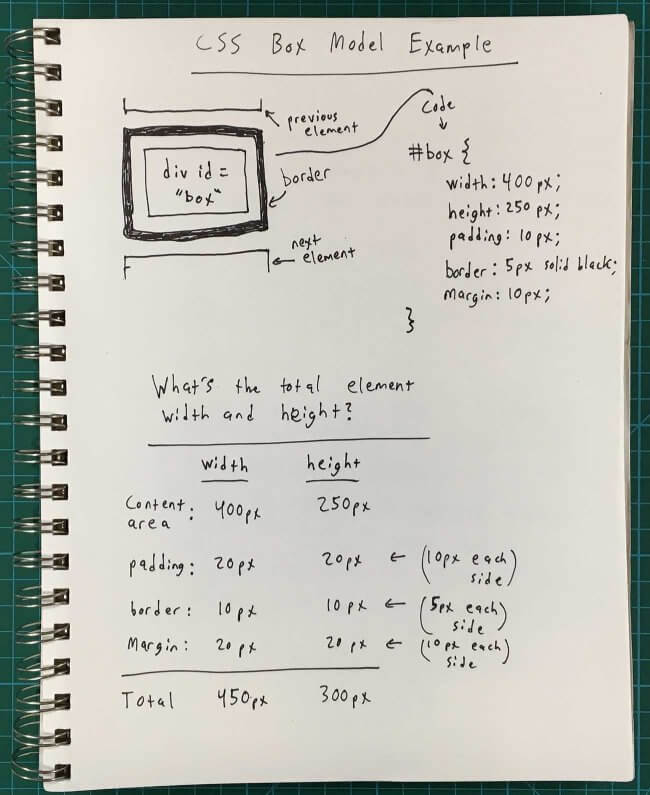 CSS Box Model Example
previous
element
div id =
"box"
border
next
element
Code
#box {
width: 400px;
height: 250px;
padding: 10px;
border: 5px solid black;
margin: 10px;
}
What's the total element
width and height?
width height
Content
area : 400px 250px
padding: 20px 20px ← (10px each
side)
border: 10px 10px ← (5px each
side)
Margin: 20px 20px ← (10px each
side)
Total 450px 300px